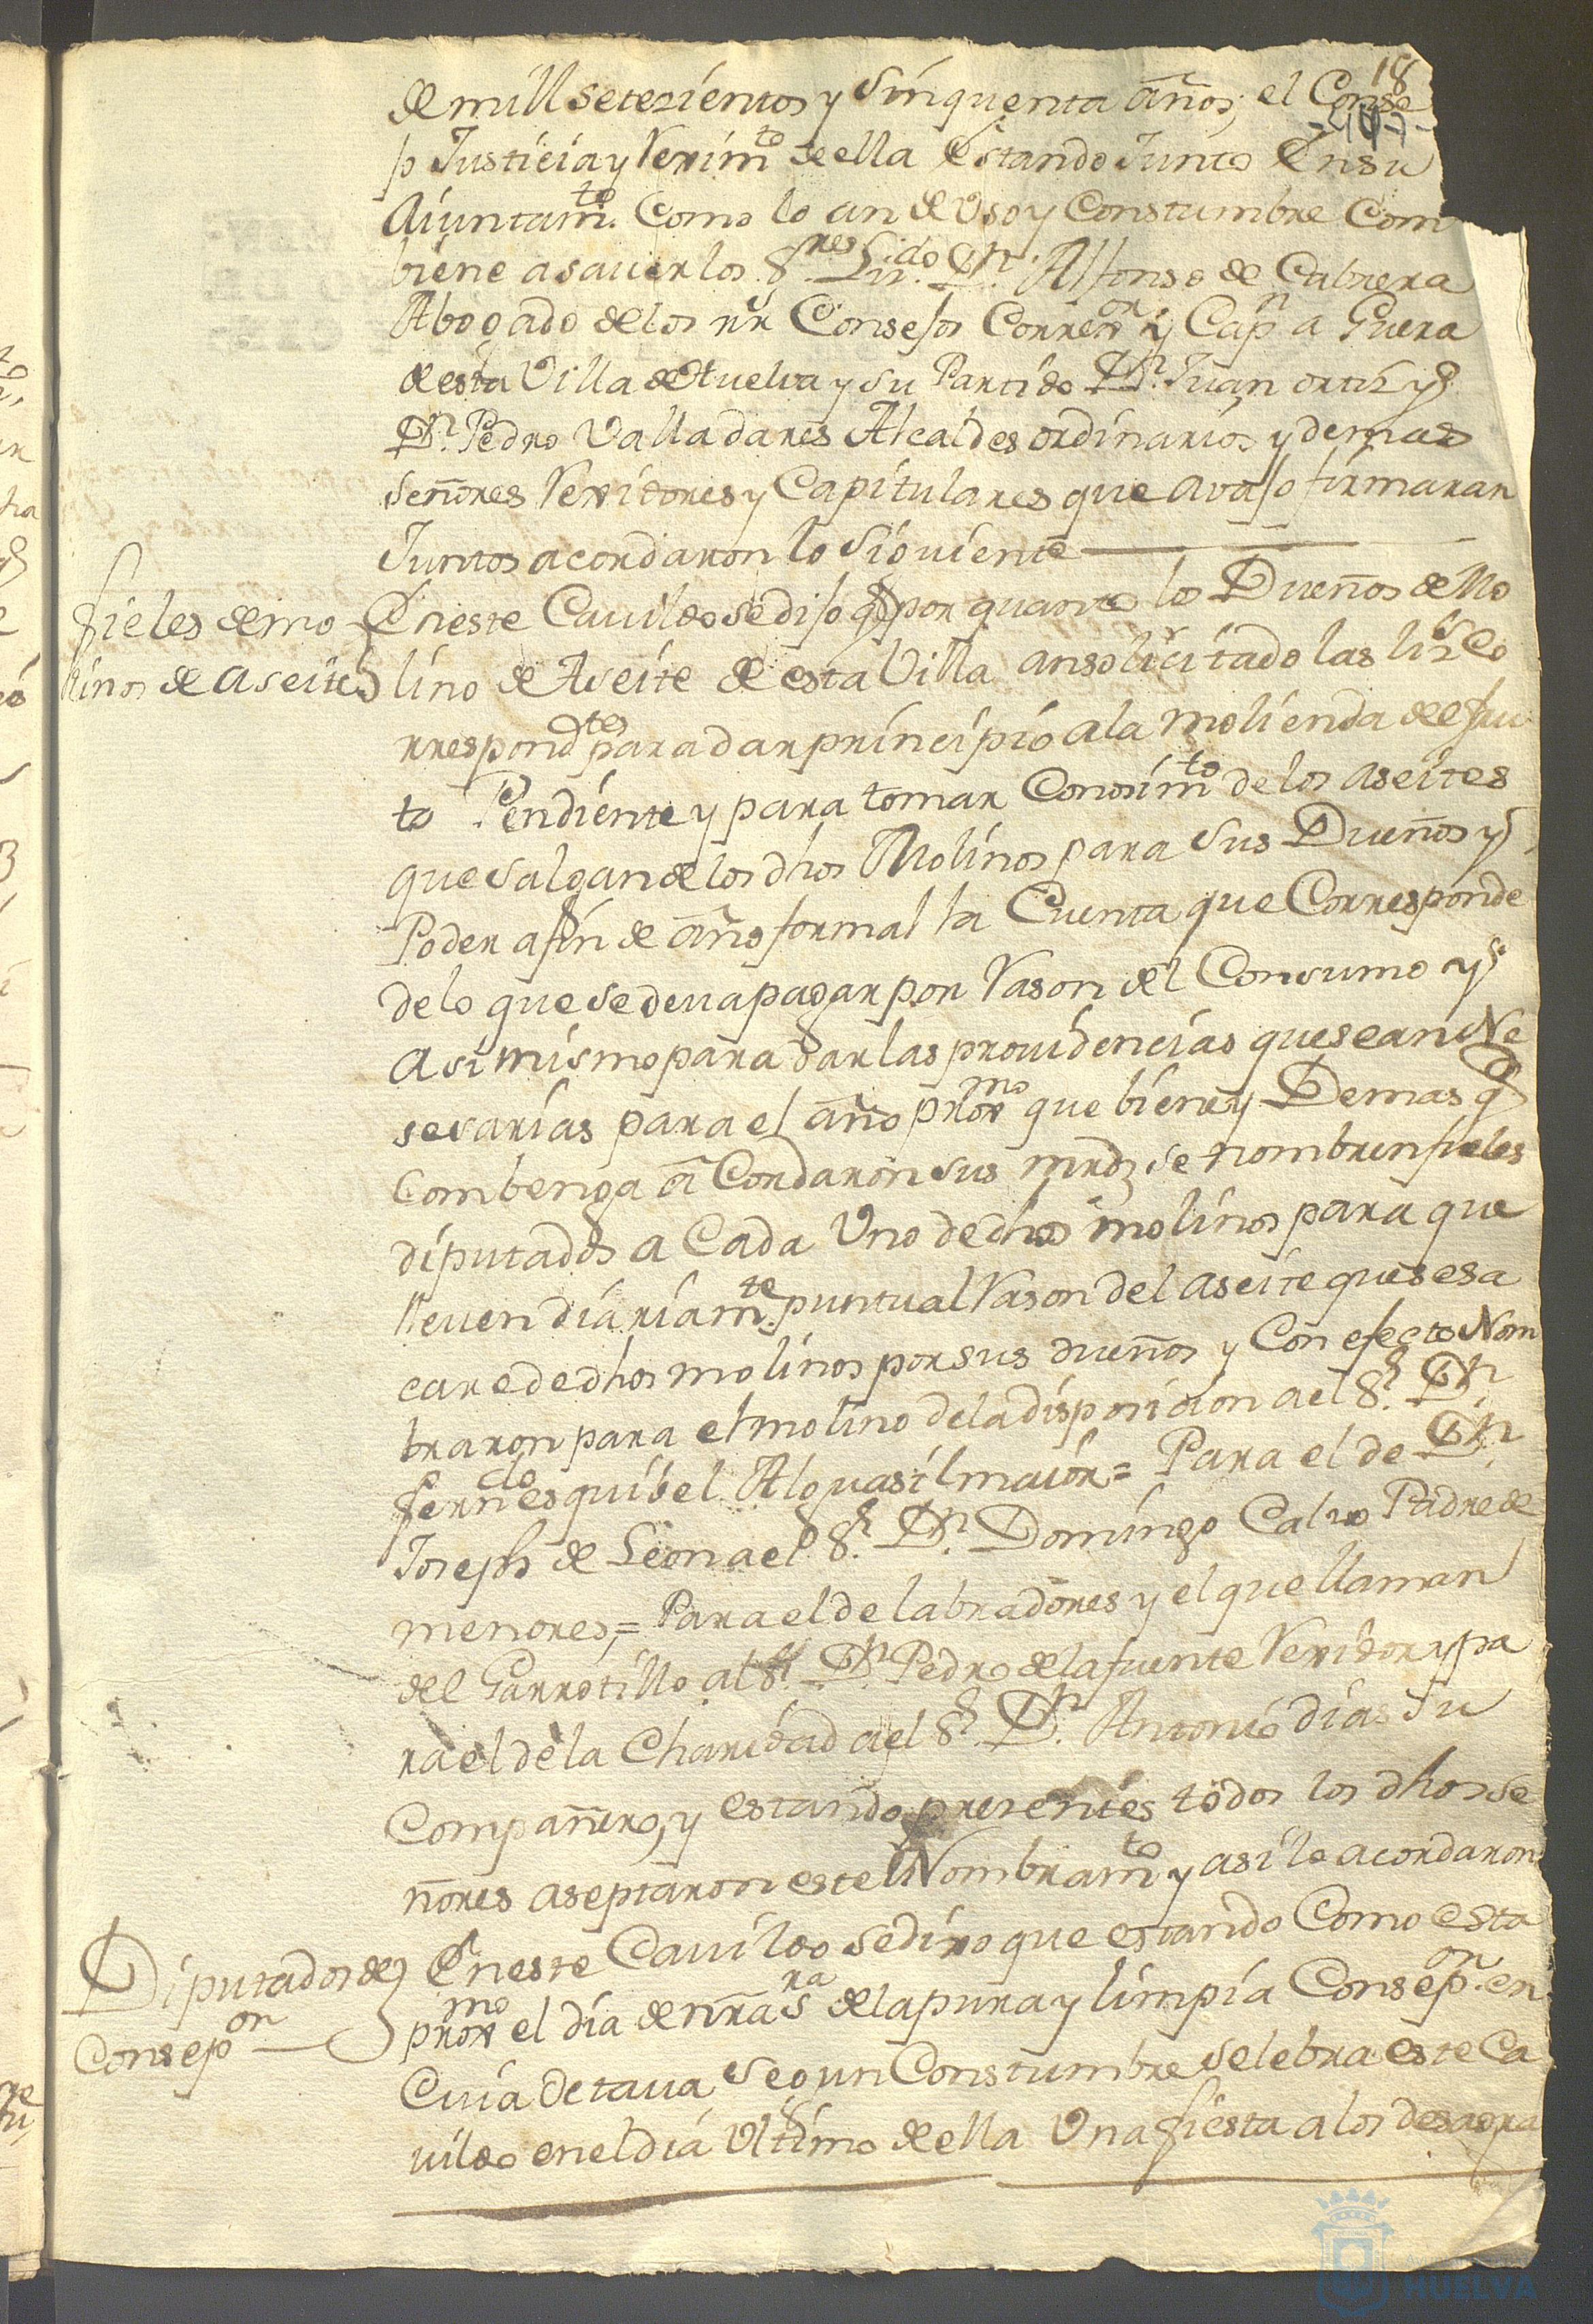 18
de mill setezientos y sinquenta años, el Conse
jo Justicia y Rexim.to de ella Estando Junto En su
Aiuntam.to Como lo an de Uso y Constumbre Com
biene a sauer los S.res Lis.do D.n Alfonso de Cabrera
Abogado de los rr.s Consejos Correx.or y Cap.n a Guera
de esta Villa de Huelva y su Partido D.n Juan ortiz y
D.n Pedro Valladares Alcaldes ordinarios y demas
señores Rexidores y Capitulares que avajo firmaran
Juntos acordaron lo siguiente
fieles de mo
linos de aseite
En este Cauildo se dijo q por quanto los Dueños de Mo
lino de Aseite de esta Villa an solicitado las liz.s Co
rrespond.tes para dar principio a la molienda de el fru
to Pendiente y para tomar Conosim.to de los aseites
que salgan de los dhos Molinos para sus Dueños y
Poder a fin de año formal la Cuenta que Corresponde
de lo que se deua pagar por Rason del Consumo y
asi mismo para dar las prouidencias que sean Ne
sesarias para el año prox.mo que biene y Demas q
Combenga a Cordaron sus mrds se nombren fieles
diputados a Cada Uno de dhos molinos para que
lleuen diariam.te puntual Rason del aseite que se sa
care de dhos molinos por sus dueños y Con efecto Nom
braron para el molino de la disposicion a el S.r D.n
fern.do esquibel Alguasil maior = Para el de D.n
Joseph de Leon a el S.r D.n Domingo Calvo Padre de
menores, = Para el de labradores y el que llaman
del Garrotillo al S.r D.n Pedro de la fuente Rexidor y pa
ra el de la Charidad a el S.r D.n Antonio dias su
Compañero, y estando presentes todos los dhos se
ñores aseptaron este Nombram.to y asi lo acordaron
Diputados de
Consep.on
En este Cauildo se dixo que estando Como esta
prox.mo el dia de nra S.ra de la pura y limpia Consep.on en
Cuia Octaua segun Constumbre selebra este Ca
uildo en el dia Ultimo de ella Una fiesta a los desagra
HUELVA